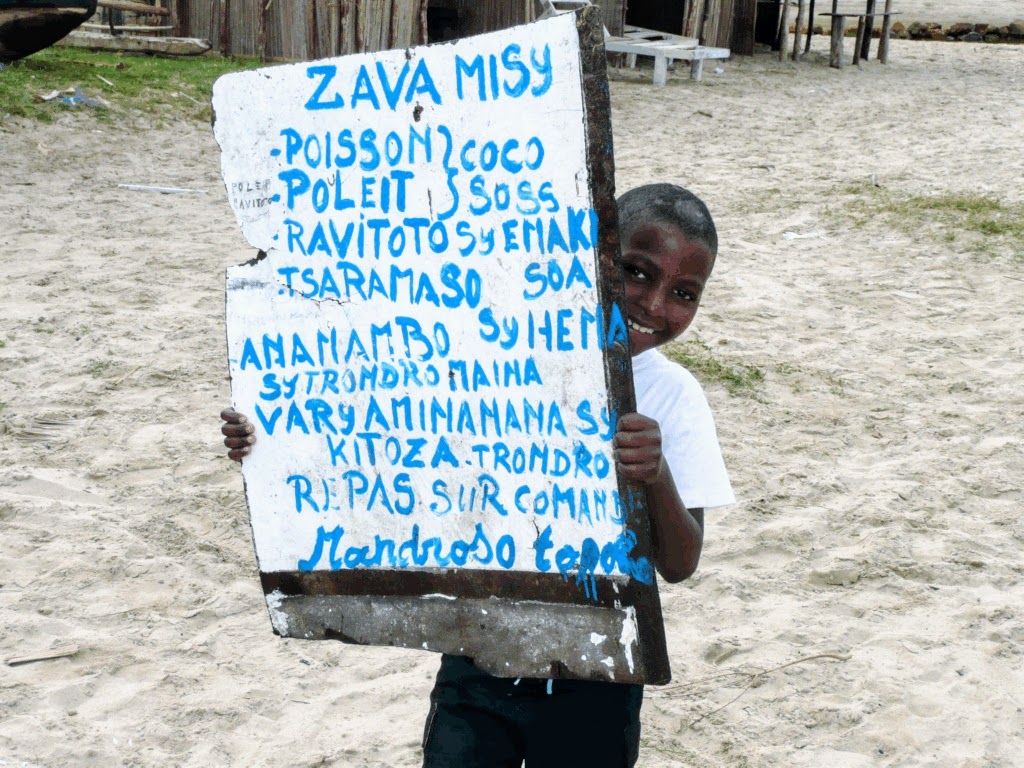 ZAVA MISY
-POISSON} COCO
-POLEIT } SOSS
-RAVITOTO SY EMAKI
-TSARAMASO SOA
-ANANAMBO SY HENA
SY TRONDRO MAINA
VARY AMINANANA SY
KITOZA. TRONDRO
REPAS SUR COMAND
Mandroso